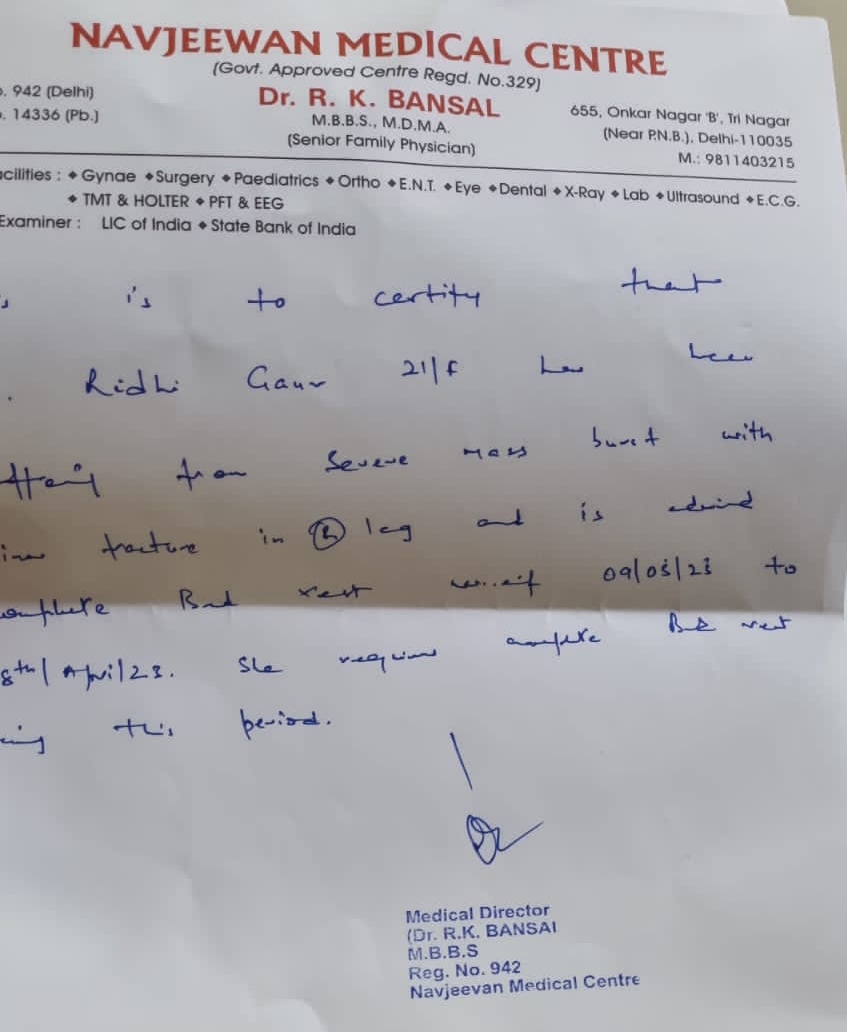 NAVJEEWAN MEDICAL CENTRE
(Govt. Approved Centre Regd. No.329)
. 942 (Delhi)
. 14336 (Pb.)
Dr. R. K. BANSAL
M.B.B.S., M.D.M.A.
(Senior Family Physician)
655, Onkar Nagar 'B', Tri Nagar
(Near P.N.B.), Delhi-110035
M.: 9811403215
acilities : ♦ Gynae ♦ Surgery ♦ Paediatrics ♦ Ortho ♦ E.N.T. ♦ Eye ♦ Dental ♦ X-Ray ♦ Lab ♦ Ultrasound ♦ E.C.G.
♦ TMT & HOLTER ♦ PFT & EEG
Examiner : LIC of India ♦ State Bank of India
is to certify that
Ridhi Gaur 21/F has been
from Severe mass with
fracture in (R) leg and is advised
complete Bed rest 09/03/23 to
8th/April/23. She requires complete Bed rest
this period.
Medical Director
(Dr. R.K. BANSAL
M.B.B.S
Reg. No. 942
Navjeevan Medical Centre